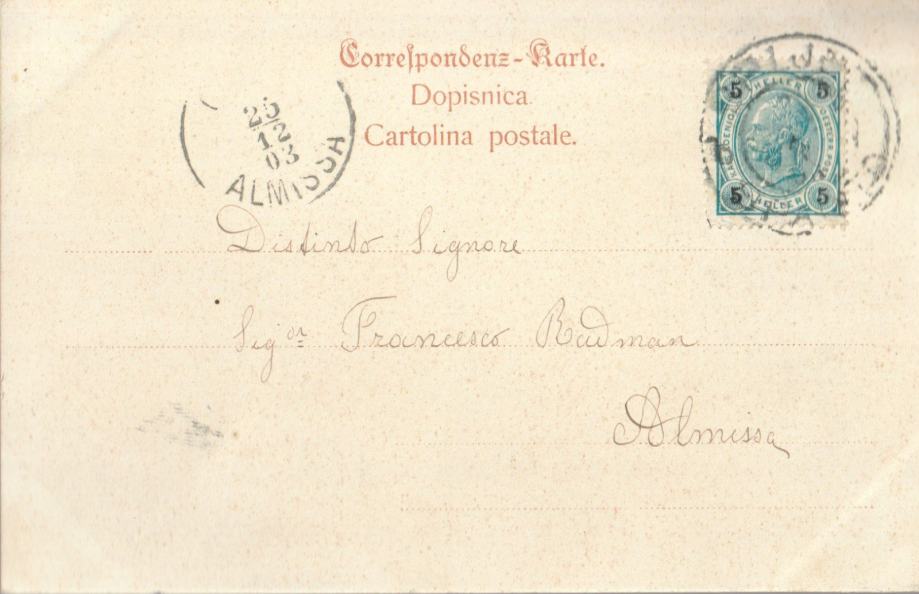 Correspondenz-Karte.
Dopisnica.
Cartolina postale.
25
12
03
ALMISSA
5 HELLER 5
5 HELLER 5
Distinto Signore
Sigor Francesco Radman
Almissa